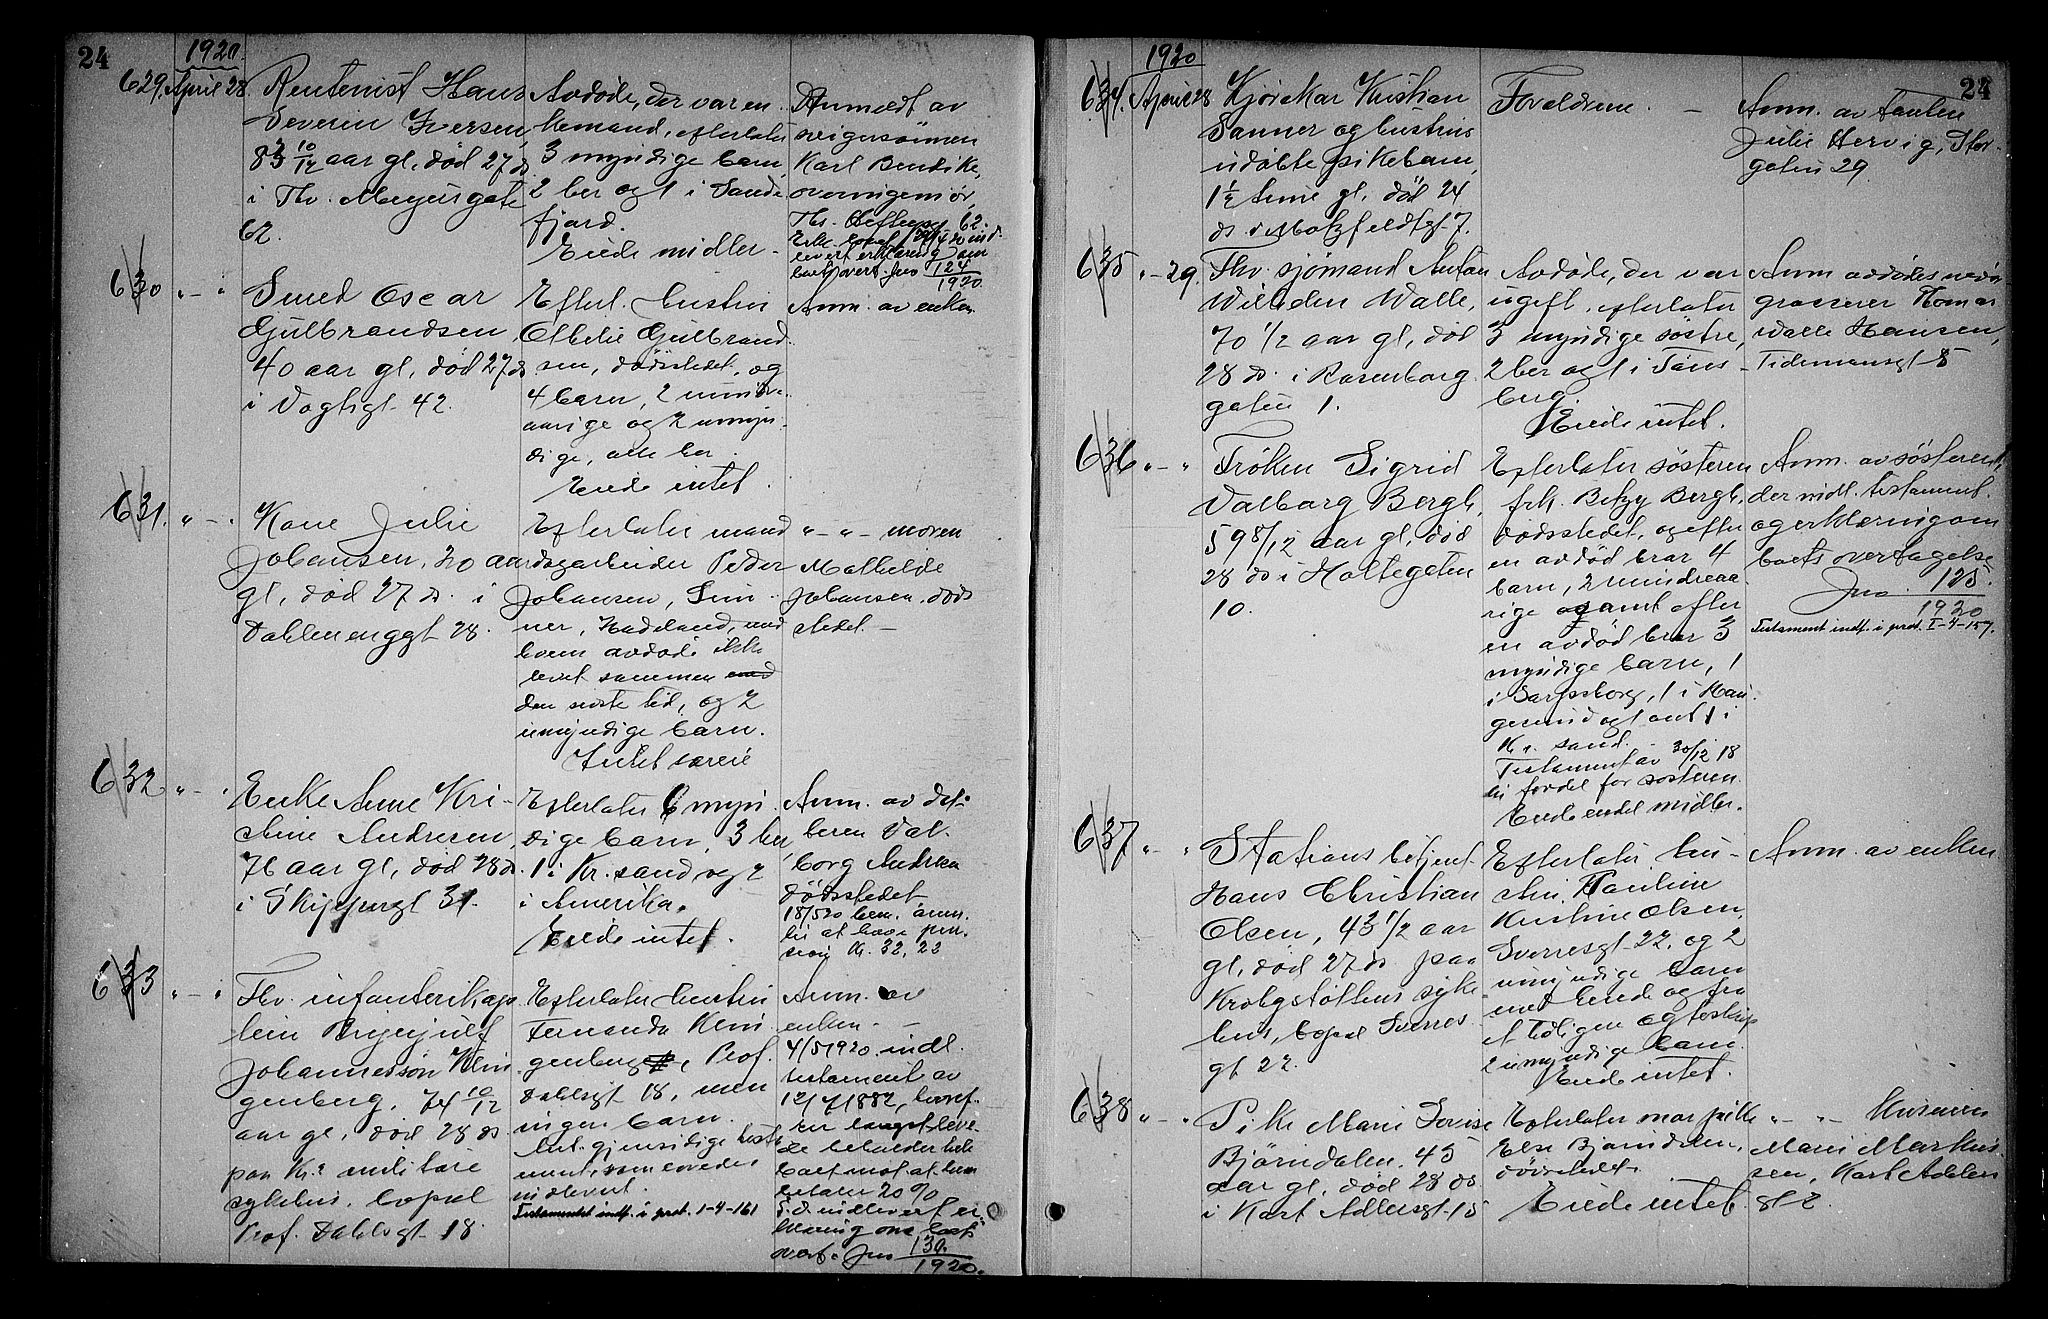 24
1920.
629. April 28
Rentenist Hans
Severin Iversen,
83 10/12 aar gl., død 27 ds.
i Thv. Meyersgate
62.
Avdøde, der var en-
kemand, efterlater
3 myndige barn,
2 her og 1 i Sande-
fjord.
Eiede midler.
Anmeldt av
svigersønnen
Karl Bendike,
overingeniør,
Ths. Heftyesg 62.
levert erklæring om
boet overt. Jno 124
1920
630 " - "
Smed Oscar
Gulbrandsen,
40 aar gl., død 27 ds
i Vogtsgt. 42.
Efterl. hustru
Othelie Gulbrand-
sen, dødsstedet, og
4 barn, 2 mindre-
aarige og 2 umyn-
dige, alle her.
Eiede intet.
Anm. av enken
631. " - "
Kone Julie
Johansen, 20 aar
gl., død 27 ds. i
Dahlenenggt. 28.
Efterlater mand
Peder
Johansen,
Hadeland, med
hvem avdøde ikke
levet sammen
den siste tid, og 2
umyndige barn.
Intet særeie
" - " - moren
Mathilde
Johansen, døds-
stedet. -
632 " - "
Enke Anne Kri-
stine Andresen,
76 aar gl., død 28 ds.
i Skippergt 31.
Efterlater 6 myn-
dige barn, 3 her,
1 i Kr.sand og 2
i Amerika.
Eiede intet.
Anm. av dat-
teren Val-
borg Andresen
dødsstedet
18/5 20 bem. anm.
til at have pen-
sion Kr. 32,23
633 " - "
Fhv. infanterikap-
tein Brynjulf
Johannessøn Klin-
genberg, 74 10/12
aar gl., død 28 ds
paa Kr.a militære
sykehus, bopæl
Prof. Dahlsgt. 18.
Efterlater hustru
Fernanda Klin-
genberg, Prof.
Dahlsgt 18, men
ingen barn.
Ant. gjensidige testa-
ment, som loves
indlevert.
Testamentet indf. i prot. 1-4-161
Anm. av
enken. -
4/5 1920 indl.
testament av
12/7 1882, hvoref-
ter længstleve-
de beholder hele
boet mot at
betaler 20 %
S.d. indlevert er-
klæring om boets
overt. Jno 130.
1920.
24
1920
634. April 28
Kjørekar Kristian
Sanner og hustrus
udøbte pikebarn,
1 1/2 time gl., død 24
ds. i Motzfeldtgt. 7.
Foreldrene. -
Anm. av tanten
Julie Hervig, Stor-
gaten 29
635 " - 29.
Fhv. sjømand Anton
Walle,
70 1/2 aar gl., død
28 ds. i Rosenborg-
gaten 1.
Avdøde, der var
ugift, efterlater
3 myndige søstre,
2 her og 1 i Tøns-
berg
Eiede intet.
Anm avdødes nevø
grosserer
Walle Hansen,
Tidemansgt 8
636 " - "
Frøken Sigrid
Valborg Bergh,
59 8/12 aar gl., død
28 ds i Holtegaten
10.
Efterlater søsteren
frk. Betzy Bergh,
dødsstedet, og efter
en avdød bror 4
barn, 2 mindreaa-
rige samt efter
en avdød bror 3
myndige barn, 1
i Sarpsborg, 1 i
og 1 i
Kr. sand. -
Testament av 30/12 18
til fordel for søsteren.
Eiede endel midler.
Anm. av søsteren,
der indl. testament
og erklæring om
boets overtagelse
Jno. 125.
1920
Testament indf. i prot. I-4-157.
637 " - "
Stationsbetjent
Hans Christian
Olsen, 43 1/2 aar
gl., død 27 ds. paa
Krohgstøttens syke-
hus, bopæl Sverres-
gt 22.
Efterlater hu-
stru Pauline
Kristine Olsen,
Sverresgt 22, og 2
umyndige barn
med henne og fra
et tidligere egteskap
2 umyndige barn.
Eiede intet.
Anm. av enken
638 " - "
Pike Marie Lovise
Bjørndalen, 45
aar gl., død 28 ds
i Kort Adlersgt. 15
Efterlater mor pike
Else Bjørndalen,
dødsstedet.
Eiede intet.
" - " kusinen
Marie Markus-
sen, Kort Adelers
gt 2.